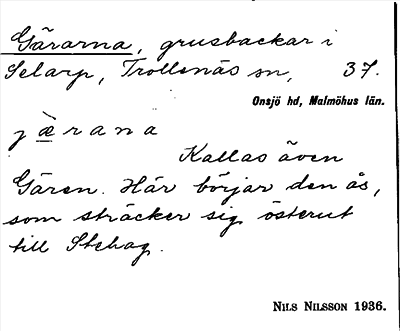 Gärarna, grusbackar i
Selarp, Trollenäs sn, 37.
Onsjö hd, Malmöhus län.
j æ̀ r a n a
Kallas även
Gären. Här börjar den ås,
som sträcker sig österut
till Stehag.
NILS NILSSON 1936.